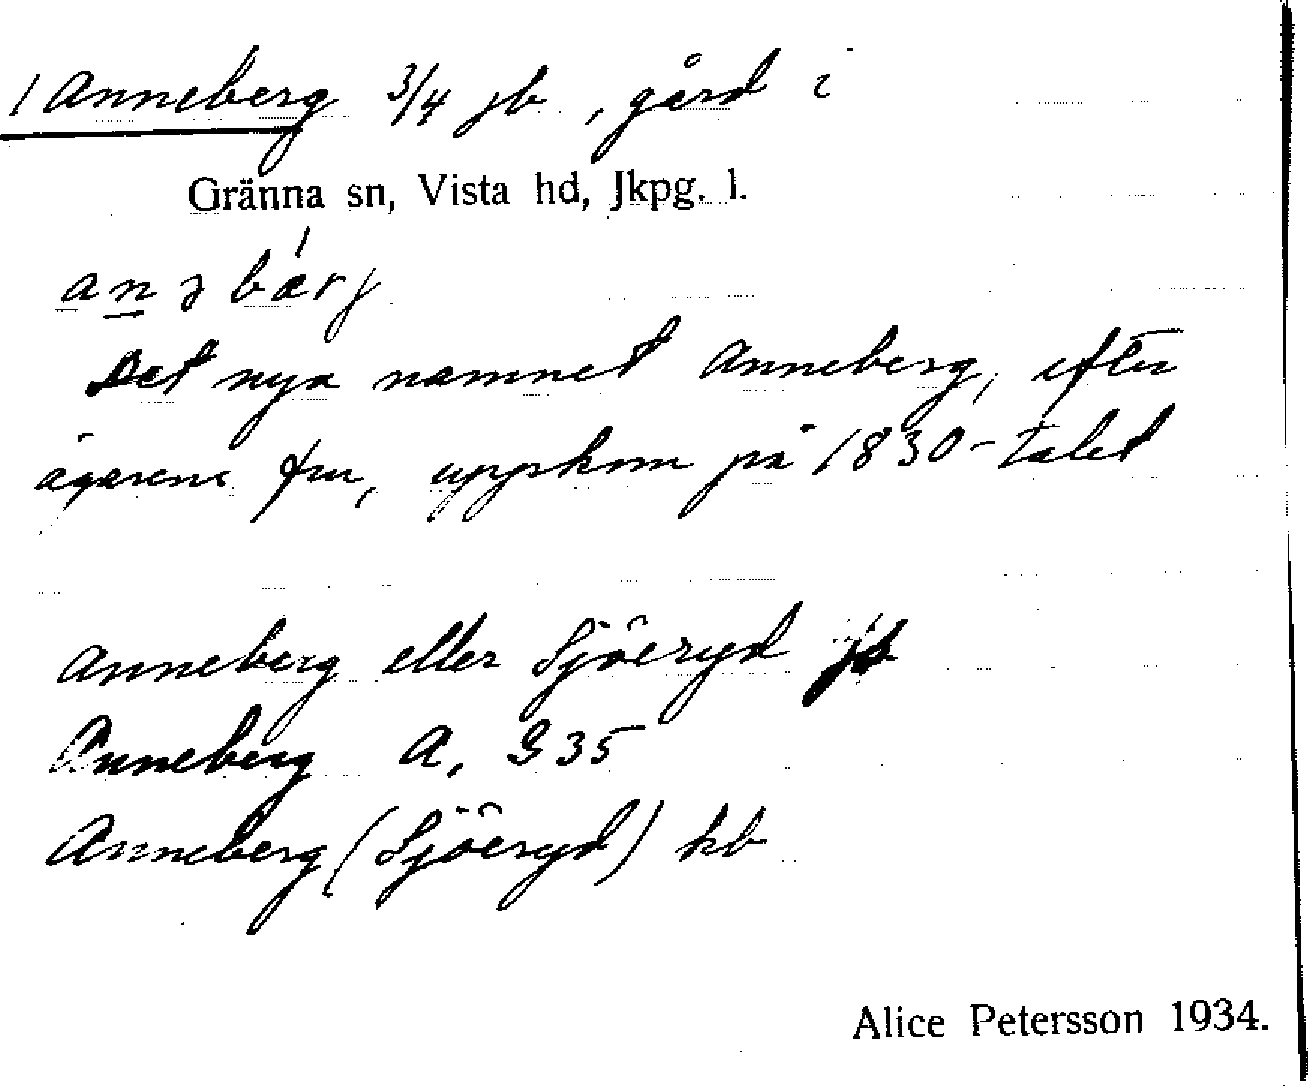 1 Anneberg 3/4 jb, gård i
Gränna sn, Vista hd, Jkpg. l.
anəbærj
Det nya namnet Anneberg, efter
ägarens fru, uppkom på 1830-talet
Anneberg eller Sjöeryd jb
Anneberg A, G 35
Anneberg (Sjöeryd) kb
Alice Petersson 1934.